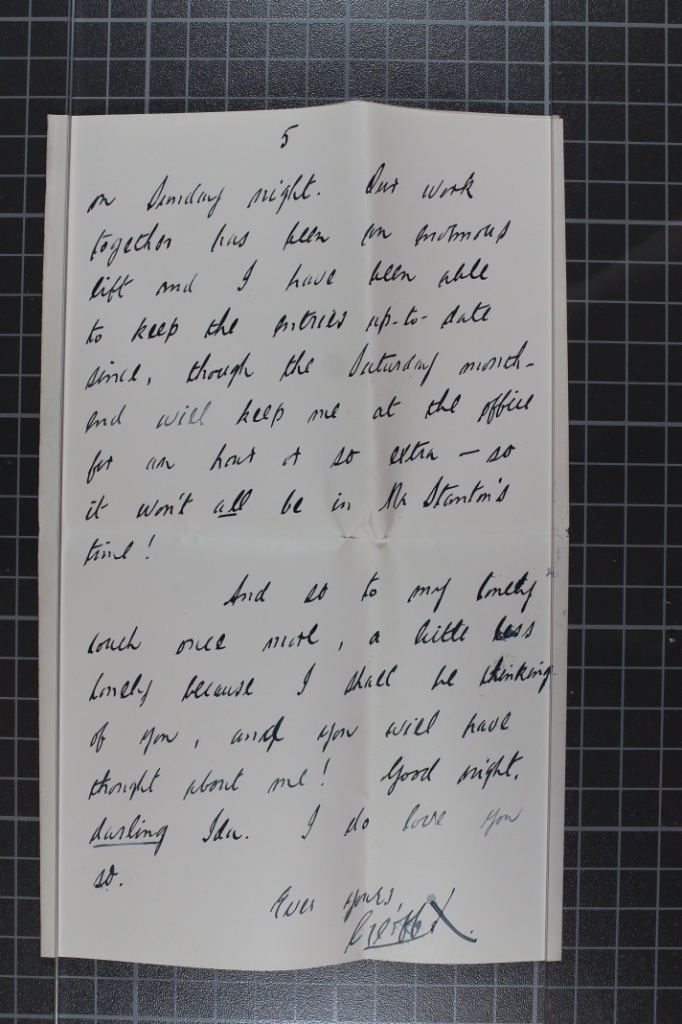 5
on Sunday night. Our work
together has been an enormous
lift and I have been able
to keep the entries up-to-date
since, though the Saturday month-
end will keep me at the office
for an hour or so extra — so
it won't all be in Mr Stanton's
time!
And so to my lonely
couch once more, a little less
lonely because I shall be thinking
of you, and you will have
thought about me! Good night,
darling Ida. I do love you
so.
Ever yours,